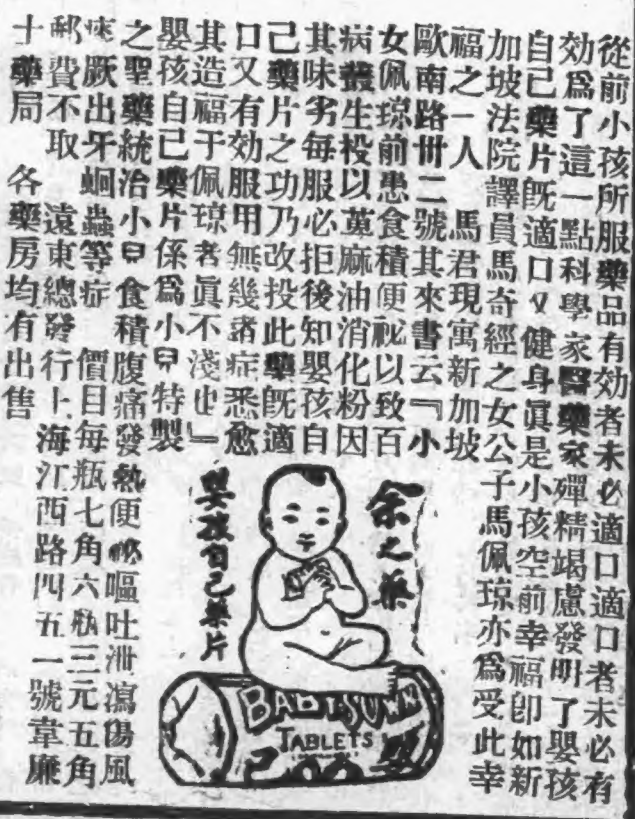 從前小孩所服藥品有効者未必適口適口者未必有
効爲了這一點科學家醫藥家殫精竭慮發明了嬰孩
自己藥片旣適口又健身眞是小孩空前幸福卽如新
加坡法院譯員馬奇經之女公子馬佩琼亦爲受此幸
福之一人 馬君現寓新加坡
歐南路卅二號其來書云『小
女佩琼前患食積便祕以致百
病叢生投以萆麻油消化粉因
其味劣每服必拒後知嬰孩自
己藥片之功乃改投此藥旣適
口又有効服用無幾諸症悉愈
其造福于佩琼者眞不淺也』
嬰孩自己藥片係爲小兒特製
之聖藥統治小兒食積腹痛發熱便祕嘔吐泄瀉傷風
痰厥出牙蛔蟲等症 價目每瓶七角六瓶三元五角
郵費不取 遠東總發行上海江西路四五一號韋廉
士藥局 各藥房均有出售
余之藥
嬰孩自己藥片
BABY'S OWN
TABLETS
己 嬰